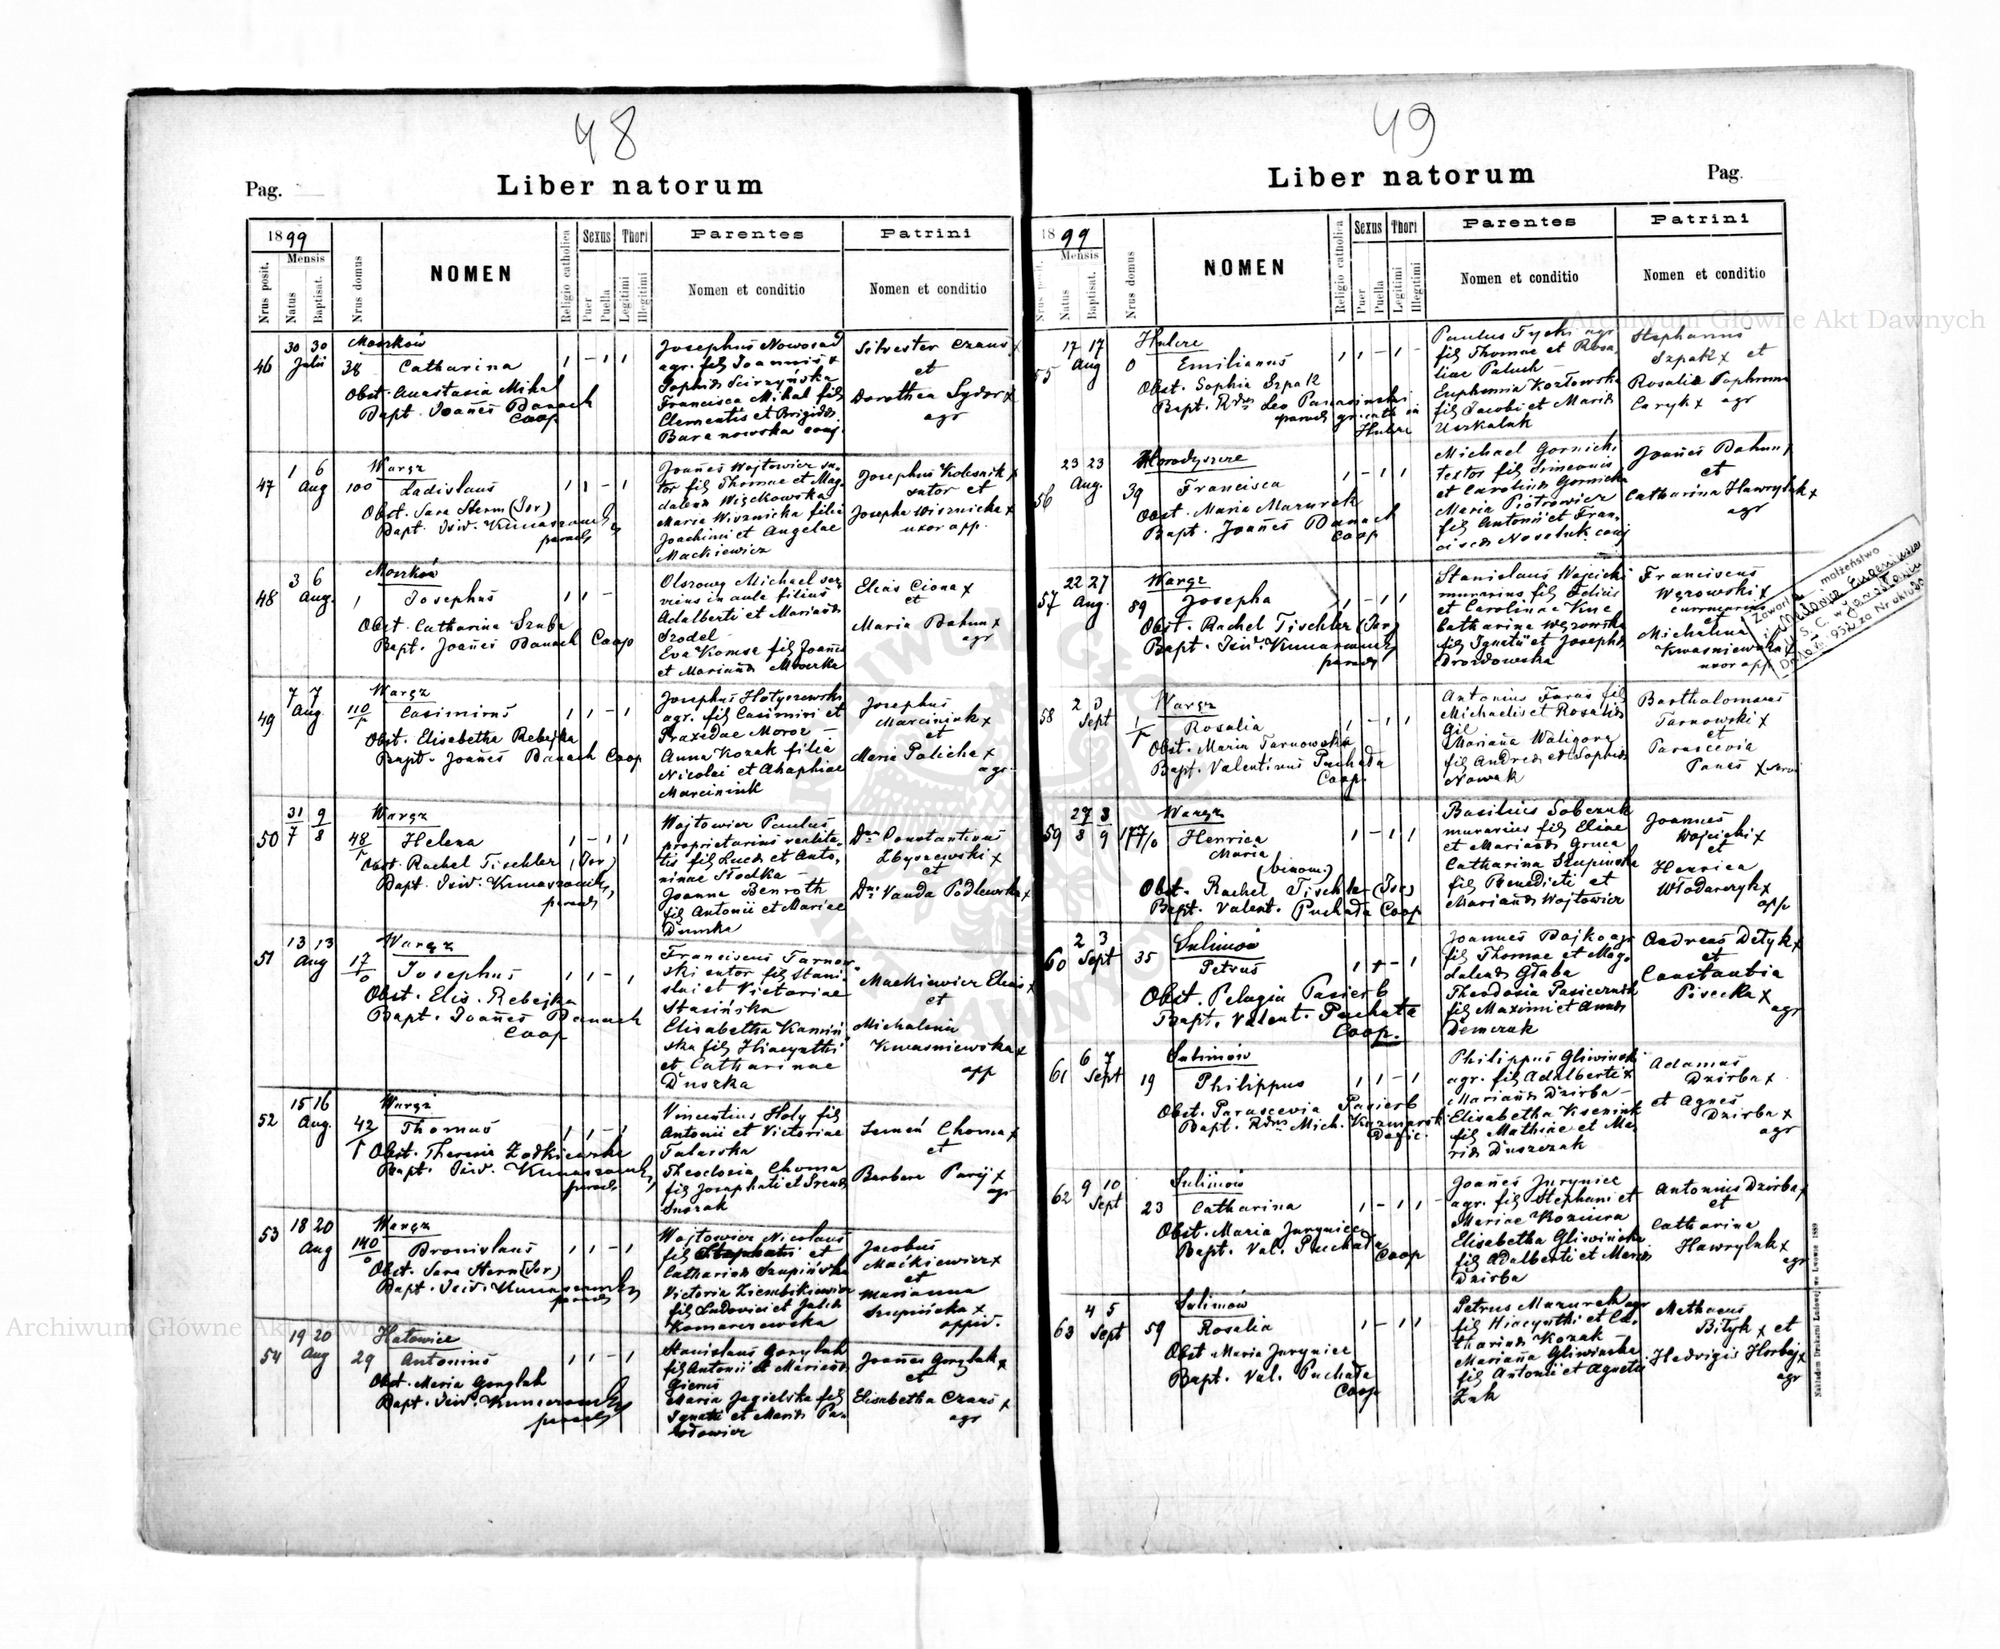 48
Pag.
Liber natorum
1899
Mensis
Nrus posit.
Natus
Baptisat.
Nrus domus
NOMEN
Religio catholica
Sexus
Puer
Puella
Thori
Legitimi
Illegitimi
Parentes
Nomen et conditio
Patrini
Nomen et conditio
46
30 30
Julii
38
Moszków
Catharina
Obst. Anastasia Mihal
Bapt. Joañes Banach
Coop
Josephus Nowosad
agr. fil Joannis &
Francisca Mihal fil
Clementis et Brigidae
Baranowska conj.
Silvester Czaus x
et
Dorothea Sydor x
agr
47
1 6
Aug
100
Waręż
Ladislaus
Obst. Sara Sterm (Isr)
paroch
Joañes Wojtowicz su-
tor fil Thomae et Mag-
dalenae Więckowska
Maria Wisznicka filia
Joachimi et Angelae
Mackiewicz
Josephus Kolesnik x
sutor et
Josepha Wisznicka x
uxor opp.
48
3 6
Aug.
1
Moszków
Josephus
Obst. Catharina Szuba
Bapt. Joañes Banach Coop
Olszowy Michael ser-
viens in aula filius
Adalberti et Marianae
Szodel
Eva Komsa fil Joañis
et Marianae
Elias Ciona x
et
Maria Bahun x
agr
49
7 7
Aug.
110
Waręż
Casimirus
Obst. Elisabetha Rebejka
Bapt. Joañes Banach Coop
agr. fil Casimiri et
Praxedae Moroz
Anna Kozak filia
Nicolai et Ahaphiae
Marciniuk
Josephus
Marciniuk x
et
Maria Palicha x
agr.
50
31 9
7 8
48
Waręż
Helena
Obst. Rachel Tischler (Isr)
paroch
Wojtowicz Paulus
proprietarius realita-
tis fil Lucae et Anto-
ninae Słodka
Joanna Benroth
fil Antonii et Mariae
Dumka
Dn Constantinus
Zbyszewski x
et
Dn Vanda Podlewska x
51
13 13
Aug
17
Waręż
Josephus
Obst. Elis. Rebejka
Bapt. Joañes Banach
Coop
Franciscus Tarnow-
ski sutor fil Stani-
slai et Victoriae
Stasińska
Elisabetha Kamiń-
ska fil Hiacynthi
et Catharinae
Duszka
Mackiewicz Elias x
et
Michalina
Kwasniewska x
opp
52
15 16
Aug.
42
Waręż
Thomas
paroch
Vincentius Holy fil
Antonii et Victoriae
Theodosia Choma
fil Josaphati et Irenae
Semeń Choma x
et
Barbara Paryj x
agr
53
18 20
Aug
140
Waręż
Bronislaus
Obst. Sara Stern (Isr)
paroch
Wojtowicz Nicolaus
fil Stephani et
Catharinae Szupińska
Victoria Ziembikiewicz
fil Ludovici et Julia
Komarzewska
Jacobus
Maćkiewicz x
et
Marianna
Szupińska x
oppid.
54
19 20
Aug
29
Hatowice
Antonius
Obst. Maria Gorylak
paroch
Stanislaus Gorylak
fil Antonii et Marianae
Maria Jagielska fil
Ignatii et Mariae Pa-
Joañes Gorylak x
et
Elisabetha Czaus x
agr
49
Liber natorum
Pag.
1899
Mensis
Nrus posit.
Natus
Baptisat.
Nrus domus
NOMEN
Religio catholica
Sexus
Puer
Puella
Thori
Legitimi
Illegitimi
Parentes
Nomen et conditio
Patrini
Nomen et conditio
55
17 17
Aug
0
Hulcze
Emilianus
Obst. Sophia Szpak
paroch gr. cath in
Hulcze
fil Thomae et Rosa-
liae Paluch
Euphemia Kozłowska
fil Jacobi et Mariae
Uszkaluk
Stephanus
Szpak x et
Rosalia
agr
56
23 23
Aug.
39
Horodyszcze
Francisca
Obst. Maria Mazurek
Bapt. Joañes Banach
Coop
Michael Gornicki
textor fil Simeonis
et Carolinae Gornicka
Maria Piotrowicz
fil Antonii et Fran-
ciscae Noseluk conj
Joañes Bahun x
et
Catharina Hawryluk x
agr
57
22 27
Aug.
89
Waręż
Josepha
Obst. Rachel Tischler (Isr)
paroch
Stanislaus Wojcicki
murarius fil Felicis
et Carolinae Kuc
Catharina Węrowska
fil Ignatii et Josephae
Drozdowska
Franciscus
Węrowski x
et
Michalina
Kwasniewska x
uxor opp
Zawarł małżeństwo
S. C. w Jarosławiu
58
2 3
Sept
1
Waręż
Rosalia
Obst. Maria Tarnowska
Bapt. Valentinus Puchada
Coop.
Antonius Faras fil
Michaelis et Rosaliae
Gil
Mariaña Waligora
fil Andreae et Sophiae
Nowak
Bartholomaeus
Tarnowski x
et
Parascevia
Panas x
59
27 3
8 9
177/0
Waręż
Henrica
Maria
(binom.)
Obst. Rachel Tischler (Isr)
Bapt. Valent. Puchada Coop
Basilius Sobczuk
murarius fil Eliae
et Marianae Gruca
Catharina Szupinska
fil Benedicti et
Marianae Wojtowicz
Joannes
Wojcicki x
et
Henrica
Włodarczyk x
opp
60
2 3
Sept
35
Sulimów
Petrus
Obst. Pelagia Pasierb
Bapt. Valent. Puchata
Coop.
Joannes Bojko agr
fil Thomae et Mag-
dalenae Głaba
Theodosia Pasiecznik
fil Maximi et Annae
Demczuk
Andreas Detyk x
et
Constantia
Pisecka x
agr
61
6 7
Sept
19
Sulimów
Philippus
Obst. Parascevia Pasierb
Philippus Gliwinski
agr. fil Adalberti &
Marianae Dzirba
Elisabetha Ksenzuk
fil Mathiae et Ma-
riae Duszczak
Adamus
Dzirba x
et Agnes
Dzirba x
agr
62
9 10
Sept
23
Sulimów
Catharina
Obst. Maria Juryniec
Bapt. Val. Puchada
Coop
Joañes Juryniec
agr. fil Stephani et
Mariae Koziura
Elisabetha Gliwińska
fil Adalberti et Mariae
Dzirba
Antonius Dzirba x
et
Catharina
Hawryluk x
agr
63
4 5
Sept
59
Sulimów
Rosalia
Obst Maria Juryniec
Bapt. Val. Puchada
Coop
Petrus Mazurek agr
fil Hiacynthi et Ca-
tharinae Kozak
Mariaña Gliwińska
fil Antonii et Agneta
Żuk
Mathaeus
Bityk x et
Hedvigis Horbaj x
agr
Nakładem Drukarni Ludowej we Lwowie 1889
Archiwum Główne Akt Dawnych
Archiwum Główne Akt Dawnych